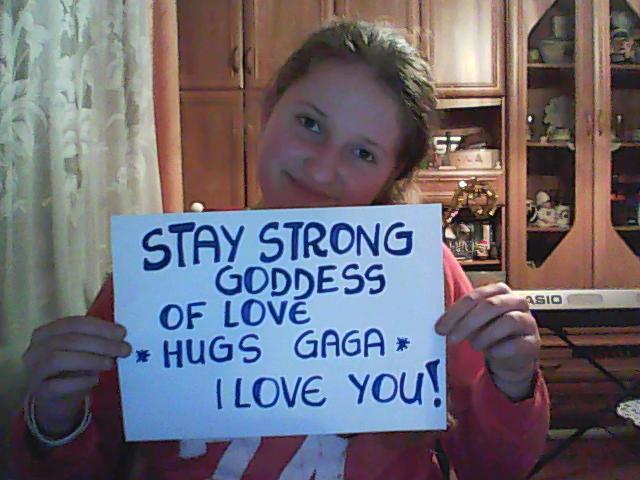 STAY STRONG
GODDESS
OF LOVE
* HUGS GAGA *
I LOVE YOU!
ASIO